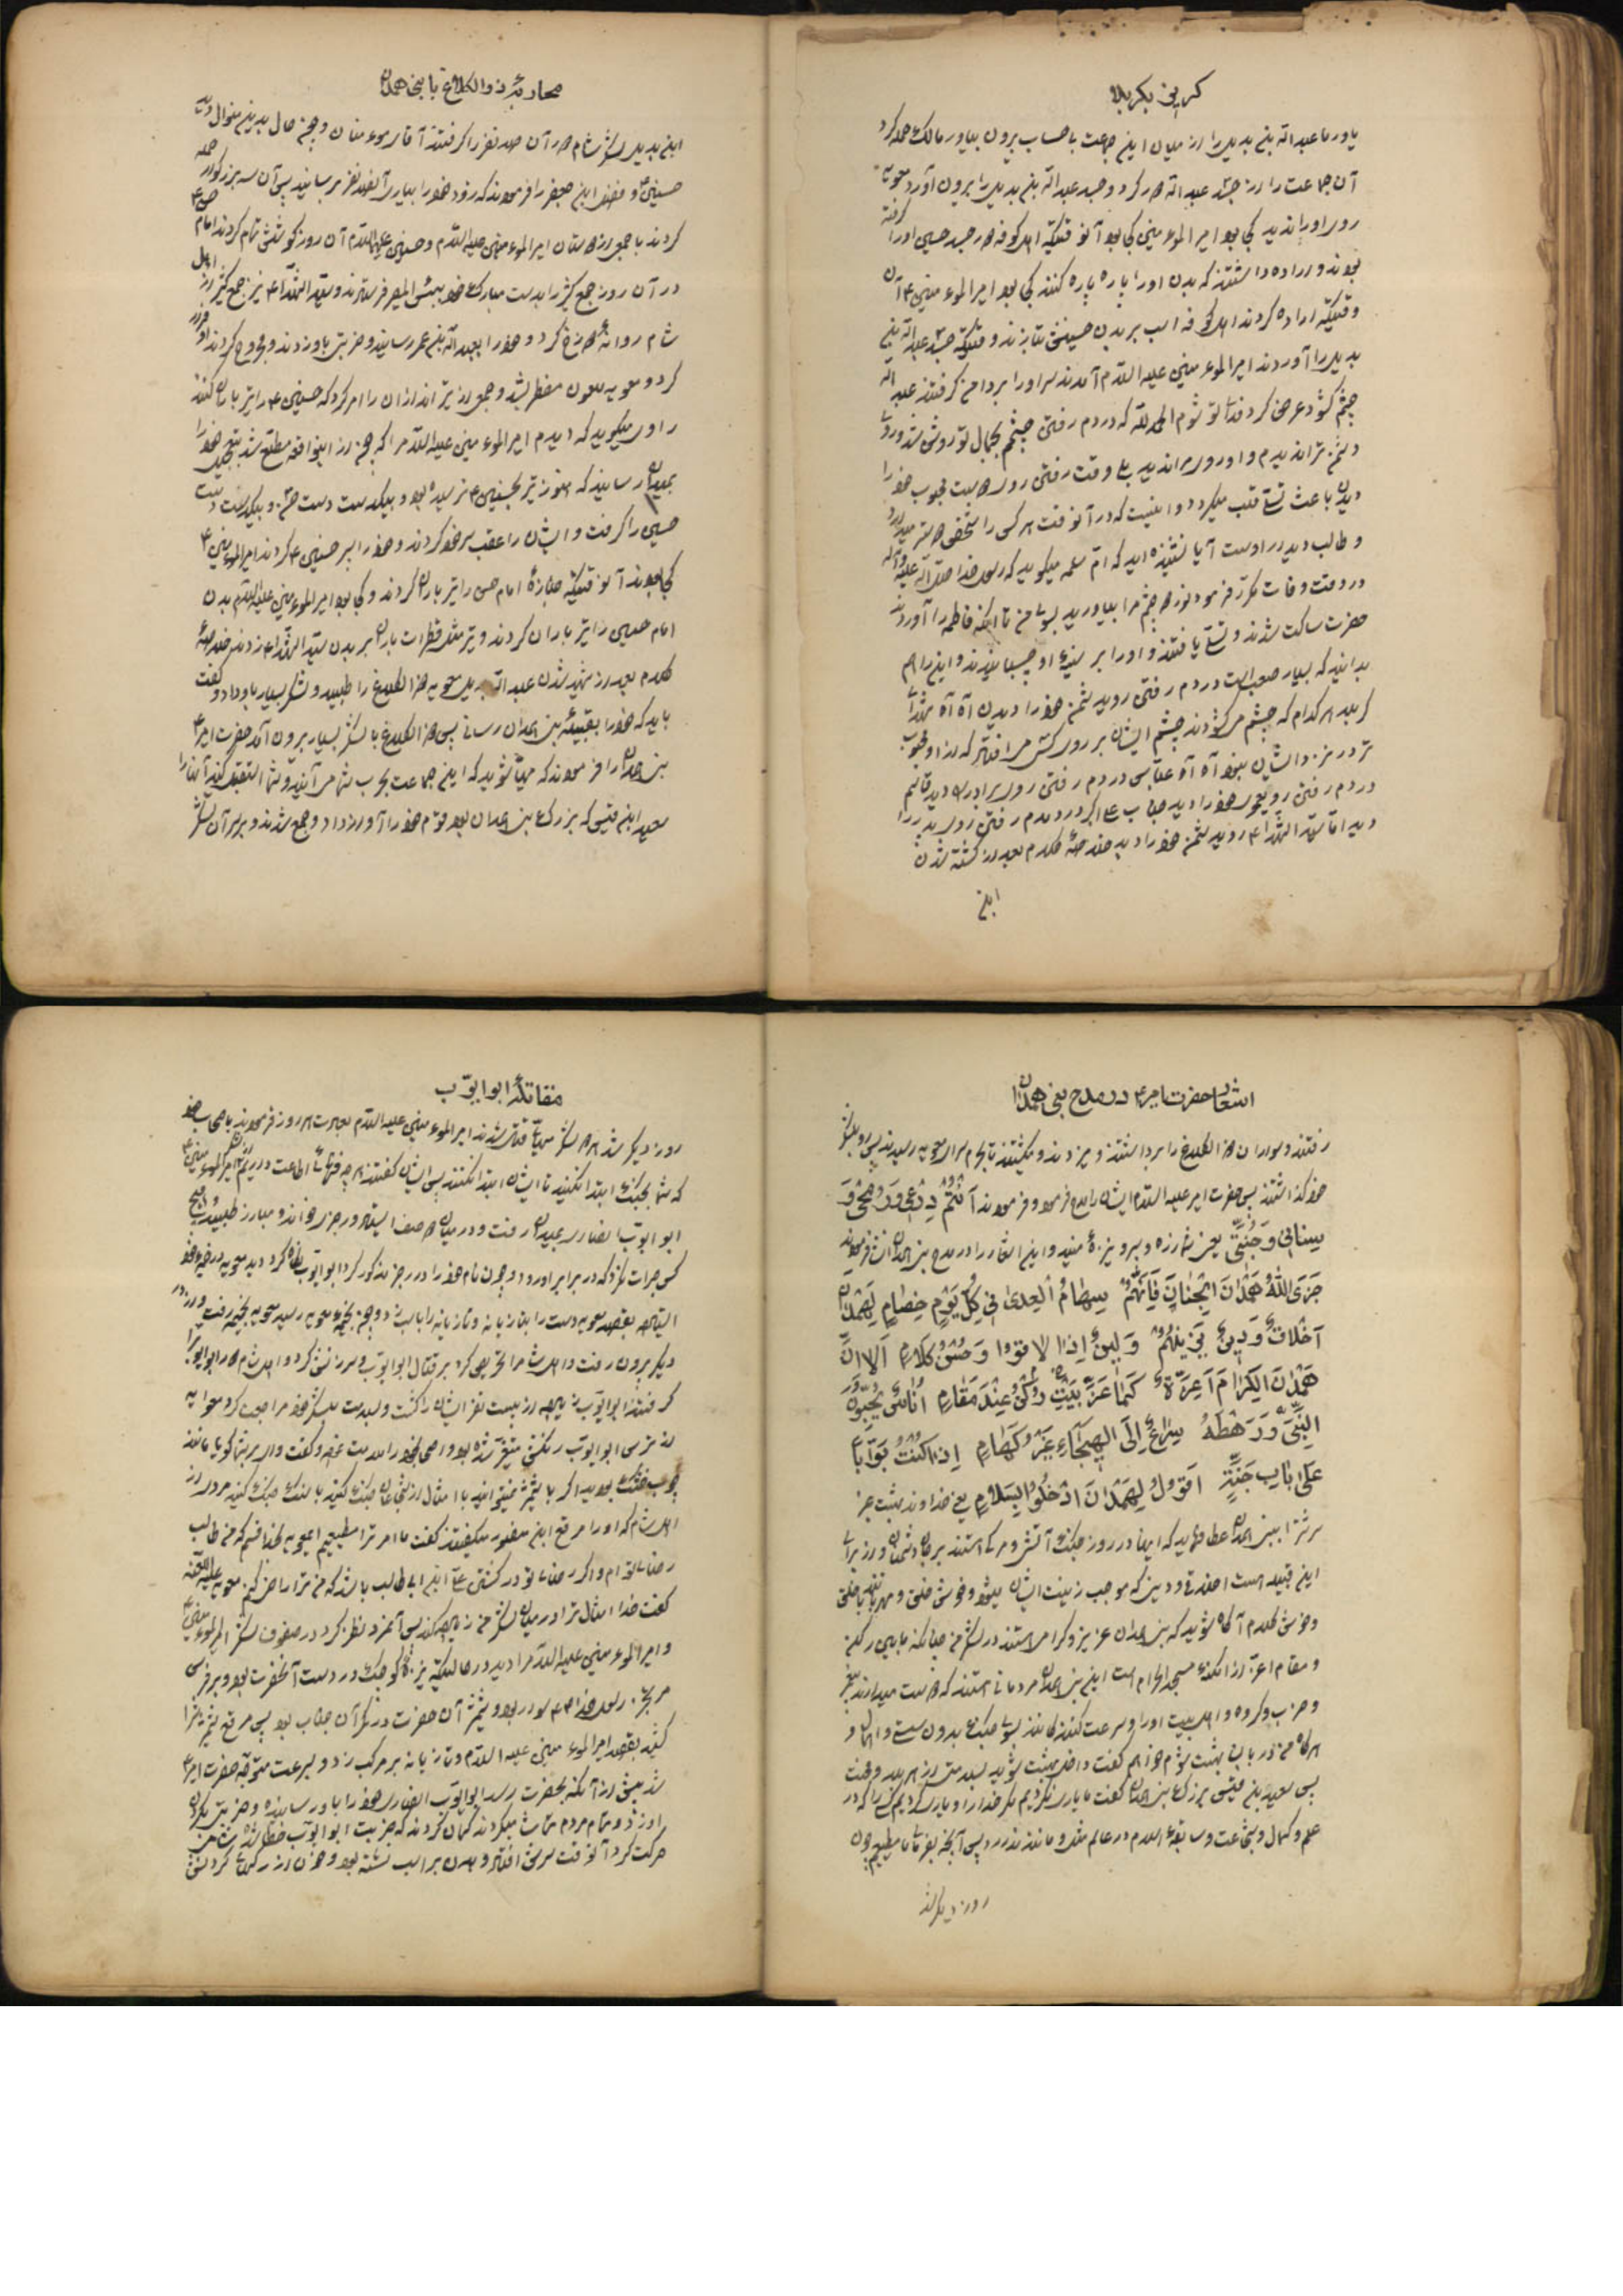 گریز بکربلا
یاور ما عبداله بن بدیل را از میان این جماعت با حساب بیرون بیاور مالک حمله کرد
آن جماعت را از جسد عبداله دور کرد و جسد عبداله بن بدیل را بیرون آورد
روی او را ندید کجا بود امیر المومنین کجا بود آنوقتیکه اهل کوفه دور جسد حسین او را گرفته
بودند و اراده داشتند که بدن او را پاره پاره کنند کجا بود امیر المومنین ع آن
وقتیکه اراده کردند اهل کوفه اسب بر بدن حسینش بتازند وقتیکه جسد عبداله بن
بدیل را آوردند امیر المومنین علیه السلام آمدند سر او را بر دامن گرفتند عبداله
چشم گشود عرض کرد فدای تو شوم الحمد لله که در دم رفتن چشمم بجمال تو روشن شد و روی
دشمن ترا ندیدم و او روی ترا ندید بلی وقت رفتن روی دوست محبوب خود را
دیدن باعث تسلی قلب میگردد و اینست که در آنوقت هر کس را شخصی دوستر میدارد
و طالب دیدار اوست آیا نشنیده اید که ام سلمه میگوید که رسول خدا صلی اله علیه و آله
در وقت وفات مکرر فرمود نور دو چشم مرا بیاورید بسوی من تا اینکه فاطمه را آوردند
حضرت ساکت شدند و تسلی یافتند و او را بر سینه او چسبانیدند و این را هم
بدانید که بسیار صعب است در دم رفتن روی دشمن خود را دیدن آه آه شهدای
کربلا هر کدام که چشم می گشودند چشم ایشان بر روی کسی می افتاد که از او محبوب
تر در نزد ایشان نبود آه آه عباس در دم رفتن روی برادر دید قاسم
در دم رفتن روی عموی خود را دید جناب علی اکبر در دم رفتن روی پدر را
دید اما سید الشهداء ع روی دشمن خود را دید خلاصه کلام بعد از کشته شدن
ابن
محاربه ذوالکلاع با بنی همدان
ابن بدیل لشکر شام دور آن صد نفر را گرفتند آقای مومنان چون حال بدین منوال دید
حسنین ع و محمد ابن جعفر را فرمودند که زود خود را بیاری آنصد نفر برسانید پس آن سه بزرگوار حمله
کردند با جمعی از دوستان امیر المومنین علیه السلام و حسنین علیهما السلام آن روز کوشش تمام کردند امام حسن ع
در آن روز جمع کثیر را بدست مبارک خود ببئس المصیر فرستاد و سید الشهداء ع نیز جمع کثیر از اهل
شام روانه دوزخ کرد و خود را بعبداله بن عمر رسانید و ضربتی باو زدند و مجروح کردند او فرار
کرد و معویه ملعون مضطر شد و جمعی از تیر اندازان را امر کرد که حسنین ع را تیر باران کنند
راوی میگوید که دیدم امیر المومنین علیه السلام را که چون از اینواقعه مطلع شد بتعجیل خود را
بمیدان رسانید که هنوز تیر بحسنین ع نرسیده بود و بیکدست دست حسن و بیکدست دست
حسین را گرفت و ایشان را عقب سر خود کردند و خود را سپر حسنین ع کردند امیر المومنین ع
کجا بودند آنوقتیکه جنازه امام حسن را تیر باران کردند و کجا بود امیر المومنین علیه السلام بدن
امام حسین را تیر باران کردند و تیر مثل قطرات باران بر بدن سید الشهداء ع زدند خلاصه
کلام بعد از شهید شدن عبداله بدیل معویه ذوالکلاع را طلبید و لشکر بسیار باو داد و گفت
باید که خود را بقبیله بنی همدان رسانی پس ذوالکلاع با لشکر بسیار بیرون آمد حضرت امیر ع
بنی همدان را فرمودند که مهیا شوید که این جماعت بحرب شما می آیند و شما استقبال کنید آنها را
سعید ابن قیس که بزرگ بنی همدان بود قوم خود را آواز داد و جمع شدند و بر سر آن لشکر
اشعار حضرت امیر ع در مدح بنی همدان
رفتند و سواران ذوالکلاع را برداشتند و میزدند و میکشتند تا بحرم سرای معویه رسیدند پس رو بلشکر
خود گذاشتند پس حضرت امیر علیه السلام ایشان را مدح فرمود و فرمودند اَنتُم دِرعی وَرُمحی وَ
سِنانی وَجُنَّتی یعنی شما زره و سپر و نیزه منید و این اشعار را در مدح بنی همدان انشا فرمودند
جَزَی اللهُ هَمدانَ الجِنانَ فَاِنَّهُم سِهامُ العِدی فی کُلِّ یَومِ خِصامٍ لِهَمدان
اَخلاقٌ وَدینٌ یَزینُهُم وَلینٌ اِذا لاقَوا وَحُسنُ کَلامٍ اَلا اِنَّ
هَمدانَ الکِرامَ اَعِزَّةٌ کَما عَزَّ بَیتُ رُکنٌ عِندَ مَقامٍ اُناسٌ یُحِبّونَ
النَّبیَّ وَرَهطَهُ سِراعٌ اِلَی الهَیجاءِ غَیرُ کَهامٍ اِذا کُنتُ بَوّاباً
عَلی بابِ جَنَّةٍ اَقولُ لِهَمدانَ ادخُلوا بِسَلامٍ یعنی خداوند بهشت عنبر
سرشت را ببنی همدان عطا فرماید که اینها در روز جنگ آتش و مرگ هستند بر جان دشمنان و از برای
این قبیله است اخلاق و دین که موجب زینت ایشان میشود و خوش خلق و مهربانند با خلق
و خوش کلام آگاه شوید که بنی همدان عزیز و گرامی هستند در لشکر من چنانکه مابین رکن
و مقام اعز از امکنه مسجد الحرام است این بنی همدان مردمانی هستند که دوست میدارند پیغمبر
و حزب و گروه و اهل بیت او را و سرعت کننده مانند بسوی جنگ بدون سستی و اهمال و
هرگاه من دربان بهشت شوم خواهم گفت داخل بهشت شوید بسلامتی از هر بلا و محنت
پس سعید بن قیس بزرگ بنی همدان گفت ما یاری نکردیم مگر خدا را و یاری کردیم کسی را که در
علم و کمال و شجاعت و سابقه اسلام در عالم مثل و مانند ندارد پس آنچه بفرمائی ما مطیعیم چون
روز دیگر شد
مقاتله ابو ایوب
روز دیگر شد هر دو لشکر مهیای قتال شدند امیر المومنین علیه السلام بعادت هر روز فرمودند باصحاب خود
که شما بجنگ ابتدا نکنید تا ایشان ابتدا نکنند پس ایشان گفتند هر چه فرمائی اطاعت داریم امیر المومنین ع
ابو ایوب انصاری بمیدان رفت و در میان دو صف ایستاد و رجزی خواند و مبارز طلبید هیچ
کس جرات نکرد که در برابر او رود و چون نام خود را در رجز مذکور کرد ابو ایوب نگاه کرد دید معویه در خیمه خود
ایستاده بقصد معویه دست را بتازیانه و تازیانه را باسب زد و چون بخیمه معویه رسید معویه بخیمه رفت و از در
دیگر بیرون رفت و اهل شام را تحریص کرد بر قتال ابو ایوب و سرزنش کرد و اهل شام دور ابو ایوب را
گرفتند ابو ایوب زیاده از بیست نفر ایشان را کشت و بسلامت بلشکر خود مراجعت کرد معویه
از ترس ابو ایوب رنگش متغیر شده بود و اصحاب خود را ملامت نمود و گفت وای بر شما گویا مانند
چوب خشک بودید اگر با شمشیر نمیتوانید با امثال ارشجاعان جنگ کنید با سنگ جنگ کنید مردی از
اهل شام که او را مرقع ابن منصور میگفتند گفت ما امر ترا مطیعیم ای معویه بخدا قسم که من طالب
رضای توام و اگر رضای تو در کشتن علی ابن ابی طالب باشد که من ترا راضی کنم معویه علیه اللعنه
گفت خدا امثال ترا در میان لشکر من زیاده کند پس آنمرد نظر کرد در صفوف لشکر امیر المومنین ع
و امیر المومنین علیه السلام را دید در حالیکه نیزه کوچک در دست آنحضرت بود و بر فرس
مرتجز رسول خدا ص سوار بود و شمشیر آن حضرت در کمر آن جناب بود پس مرقع تیزتر را
کشید بقصد امیر المومنین علیه السلام و تازیانه بر مرکب زد و بسرعت متوجه حضرت امیر ع
شد پیش از آنکه بحضرت برسد ابو ایوب انصاری خود را باو رسانید و ضربتی بگردن
او زد و تمام مردم تماشا میکردند گمان کردند که ضربت ابو ایوب خطا شد
حرکت کرد آنوقت سرش افتاد و بدن بر اسب نشسته بود و خون از رگهای گردنش